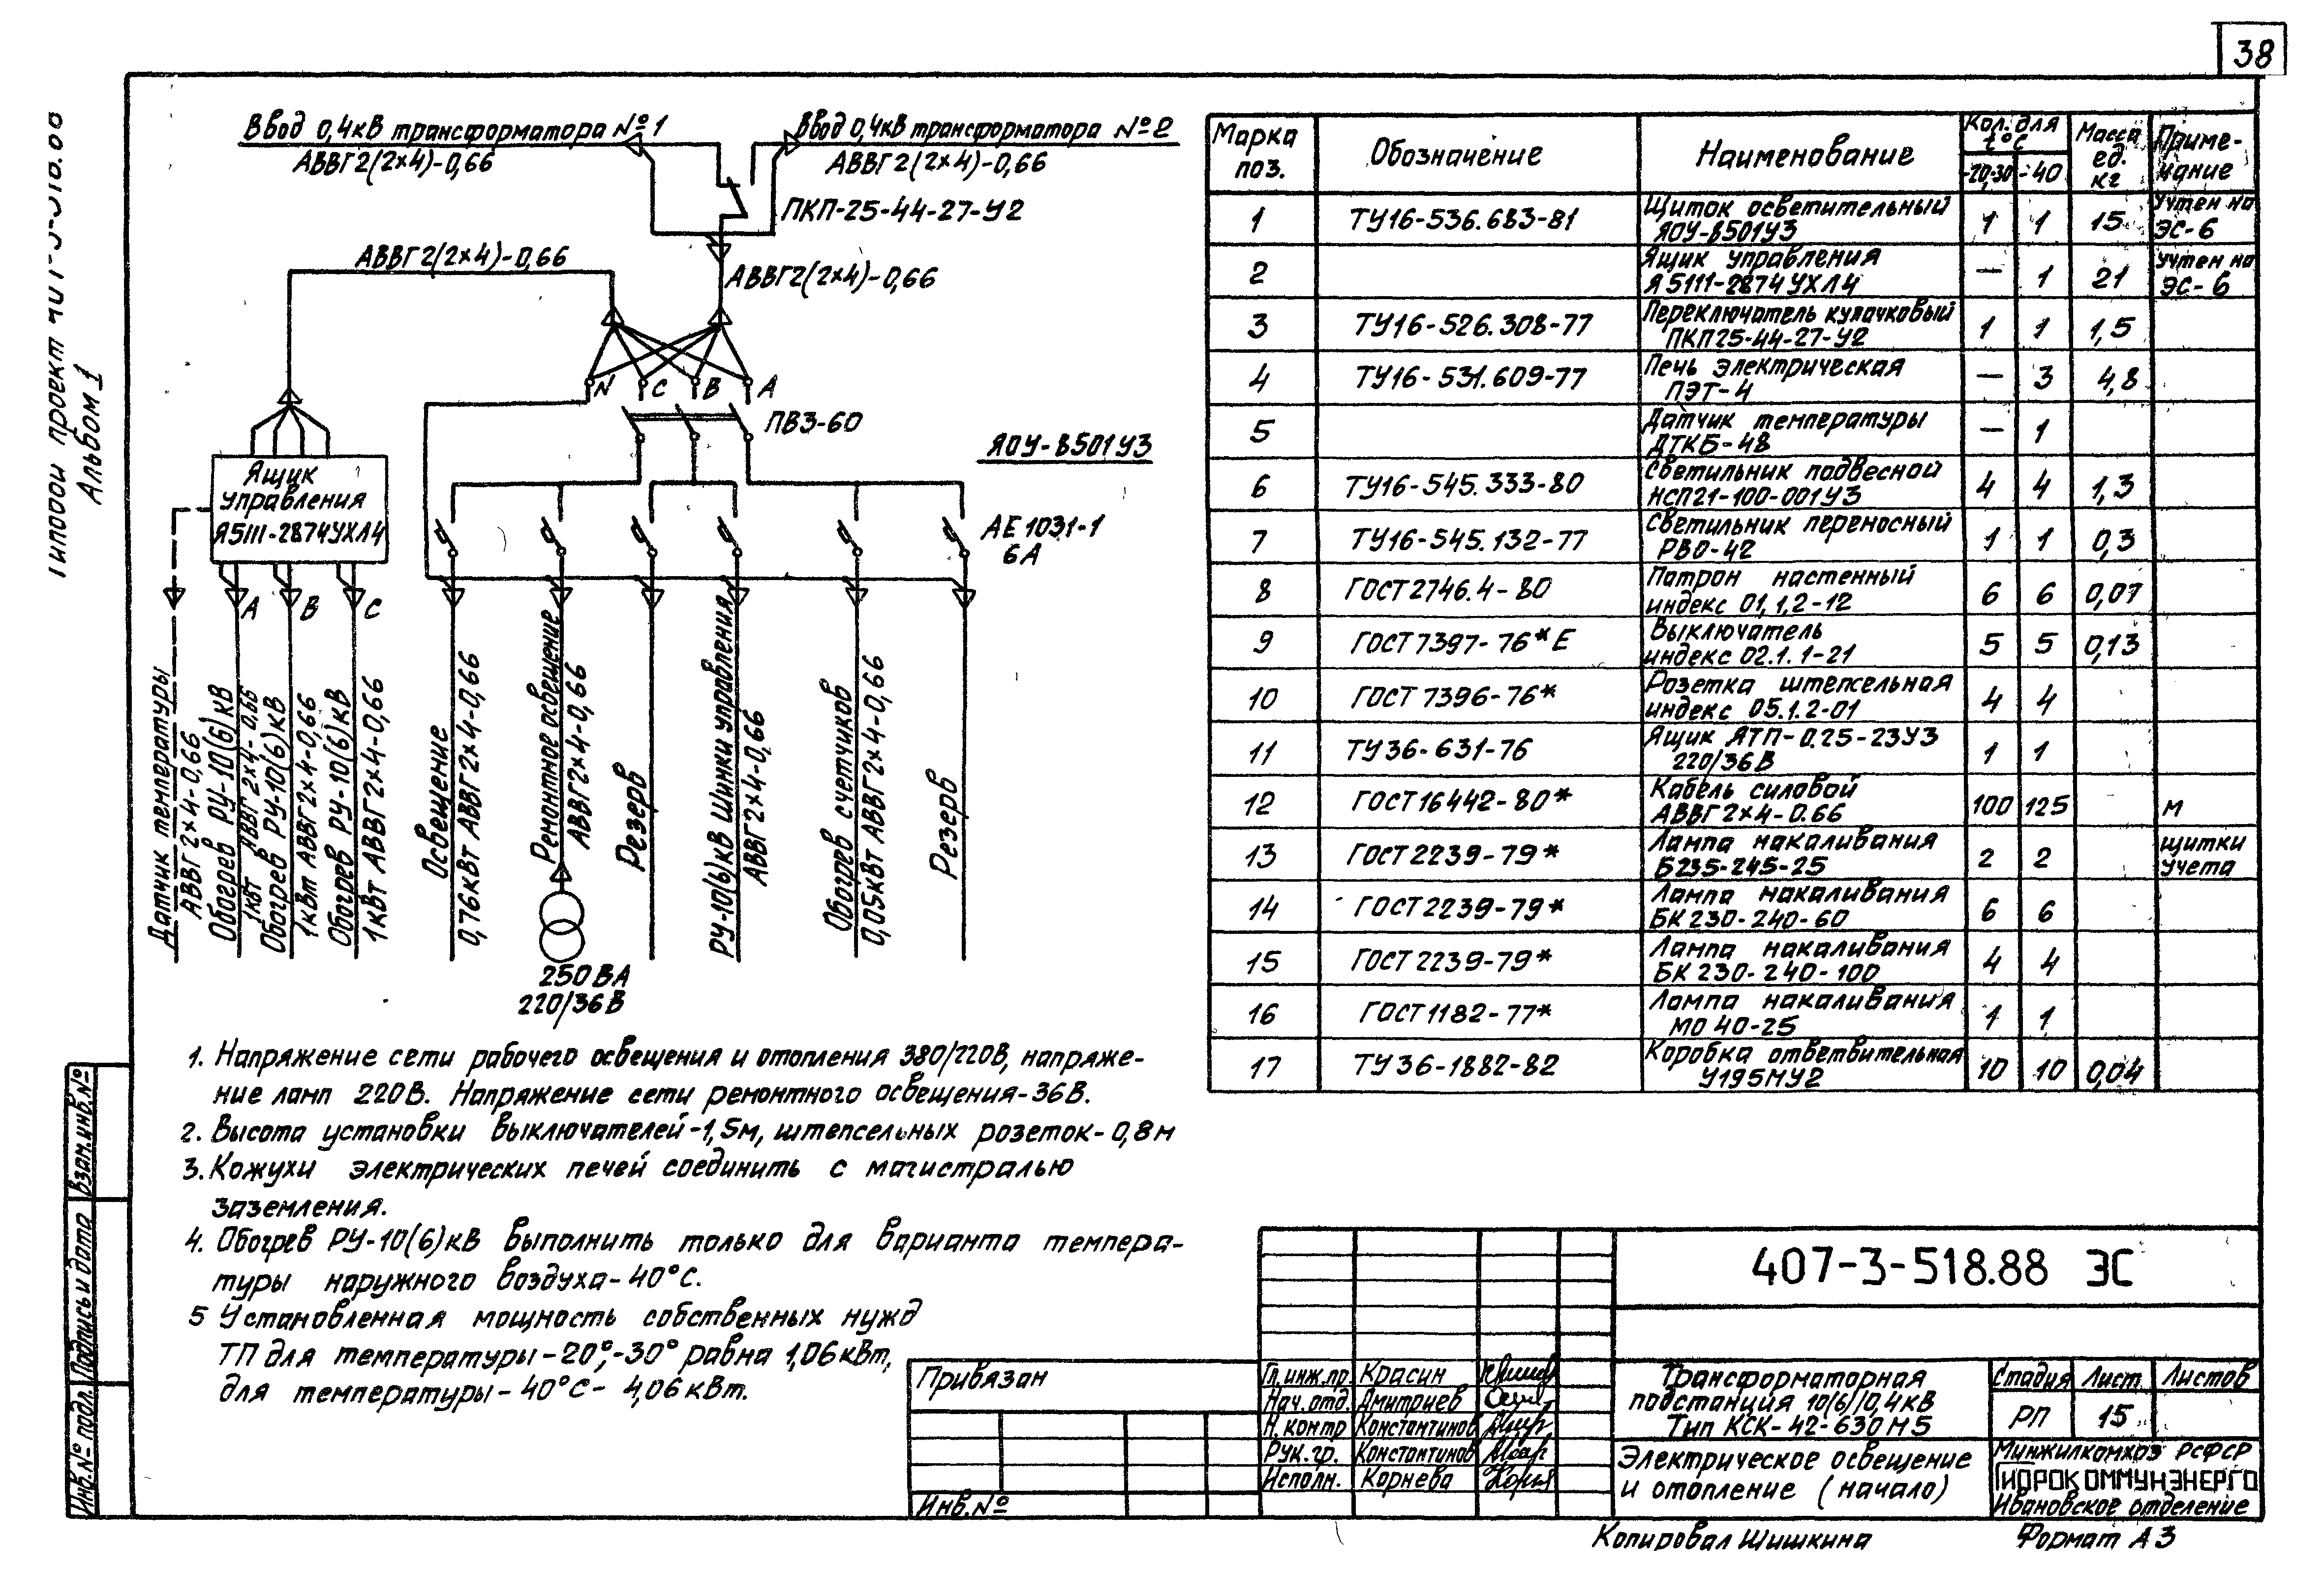 38
Альбом 1
Ввод 0,4кВ трансформатора №1
АВВГ2(2×4)-0,66
Ввод 0,4кВ трансформатора №2
АВВГ2(2×4)-0,66
ПКП-25-44-27-У2
АВВГ2(2×4)-0,66
АВВГ2(2×4)-0,66
N С В А
ПВ3-60
ЯОУ-8501У3
Ящик
управления
Я5111-2874УХЛ4
АЕ1031-1
6А
А В С
Датчик температуры
АВВГ2×4-0,66
Обогрев РУ-10(6)кВ
1кВт АВВГ2×4-0,66
Обогрев РУ-10(6)кВ
1кВт АВВГ2×4-0,66
Обогрев РУ-10(6)кВ
1кВт АВВГ2×4-0,66
Освещение
0,76кВт АВВГ2×4-0,66
Ремонтное освещение
АВВГ2×4-0,66
Резерв
РУ-10(6)кВ Шинки управления
АВВГ2×4-0,66
Обогрев счетчиков
0,05кВт АВВГ2×4-0,66
Резерв
250ВА
220/36В
1. Напряжение сети рабочего освещения и отопления 380/220В, напряже-
ние ламп 220В. Напряжение сети ремонтного освещения-36В.
2. Высота установки выключателей-1,5м, штепсельных розеток-0,8м
3. Кожухи электрических печей соединить с магистралью
заземления.
4. Обогрев РУ-10(6)кВ выполнить только для варианта темпера-
туры наружного воздуха-40°С.
5 Установленная мощность собственных нужд
ТП для температуры-20°,-30° равна 1,06кВт,
для температуры-40°С- 4,06кВт.
Марка поз. Обозначение Наименование Кол. для t°С -20,-30 -40 Масса ед. кг Приме-чание
1 ТУ16-536.683-81 Щиток осветительный ЯОУ-8501У3 1 1 15 Учтен на ЭС-6
2 Ящик управления Я5111-2874УХЛ4 — 1 21 Учтен на ЭС-6
3 ТУ16-526.308-77 Переключатель кулачковый ПКП25-44-27-У2 1 1 1,5
4 ТУ16-531.609-77 Печь электрическая ПЭТ-4 — 3 4,8
5 Датчик температуры ДТКБ-48 — 1
6 ТУ16-545.333-80 Светильник подвесной НСП21-100-001У3 4 4 1,3
7 ТУ16-545.132-77 Светильник переносный РВО-42 1 1 0,3
8 ГОСТ2746.4-80 Патрон настенный индекс 01,1,2-12 6 6 0,07
9 ГОСТ7397-76*Е Выключатель индекс 02.1.1-21 5 5 0,13
10 ГОСТ 7396-76* Розетка штепсельная индекс 05.1.2-01 4 4
11 ТУ36-631-76 Ящик ЯТП-0.25-23У3 220/36В 1 1
12 ГОСТ16442-80* Кабель силовой АВВГ2×4-0.66 100 125 м
13 ГОСТ2239-79* Лампа накаливания Б235-245-25 2 2 щитки учета
14 ГОСТ2239-79* Лампа накаливания БК230-240-60 6 6
15 ГОСТ2239-79* Лампа накаливания БК230-240-100 4 4
16 ГОСТ1182-77* Лампа накаливания МО40-25 1 1
17 ТУ36-1882-82 Коробка ответвительная У195МУ2 10 10 0,04
407-3-518.88 ЭС
Привязан
Инв.№
Гл.инж.пр. Красин
Нач.отд. Дмитриев
Н.контр Константинов
Рук.гр. Константинов
Исполн. Корнева
Трансформаторная
подстанция 10(6)/0,4кВ
Тип КСК-42-630М5
Стадия Лист Листов
РП 15
Электрическое освещение
и отопление (начало)
Минжилкомхоз РСФСР
ГИПРОКОММУНЭНЕРГО
Ивановское отделение
Копировал Шишкина
Формат А3
Взам.инв.№
Подпись и дата
Инв.№ подл.